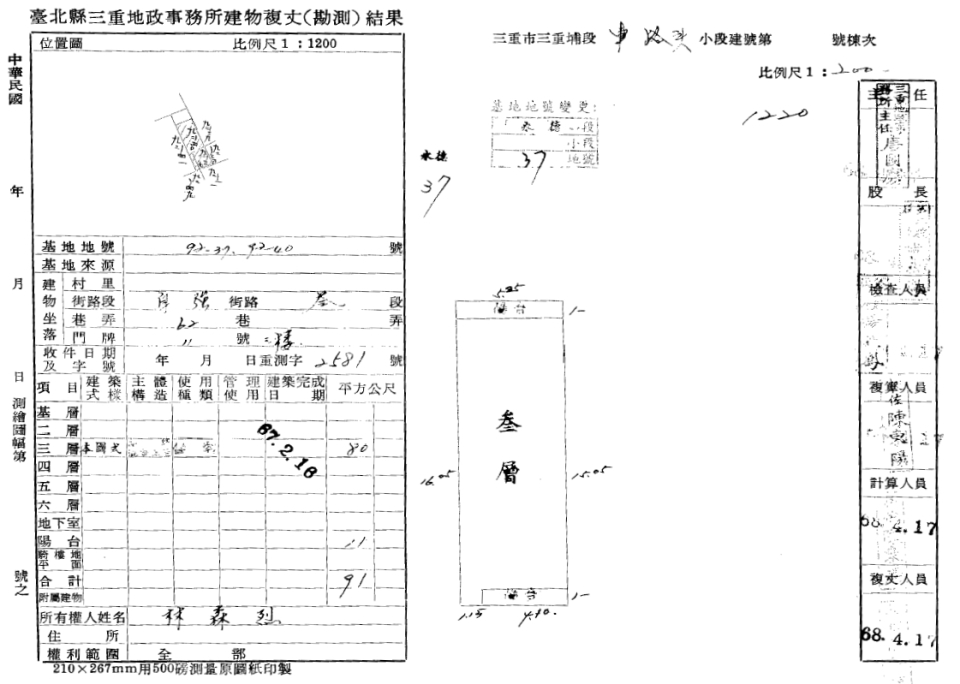 臺北縣三重地政事務所建物複丈(勘測)結果
位置圖 比例尺1:1200
中華民國 年 月 日 測繪圖幅第 號之
基地地號 92-37, 92-40 號
基地來源
建物坐落
村里
街路段 自強 街路 叁 段
巷弄 62 巷 弄
門牌 11 號 三樓
收件日期及字號 年 月 日重測字 2581 號
項目 建築式樣 主體構造 使用種類 管理使用 建築完成日期 平方公尺
基層
二層
三層 本國式 67.2.16 80
四層
五層
六層
地下室
陽台 11
騎樓地平面
合計 91
附屬建物
所有權人姓名 林森烈
住所
權利範圍 全部
210×267mm用500磅測量原圖紙印製
三重市三重埔段 車路頭 小段建號第 號棟次
比例尺1:200
1220
基地地號變更:
永德 段
小段
37 地號
永德
37
5.25
陽台 1-
叁層
16.05
15.05
陽台 1-
1.15 4.10
主任
三重地政事務所主任
股長
檢查人員
複審人員
佐陳
計算人員
68. 4.17
複丈人員
68. 4.17